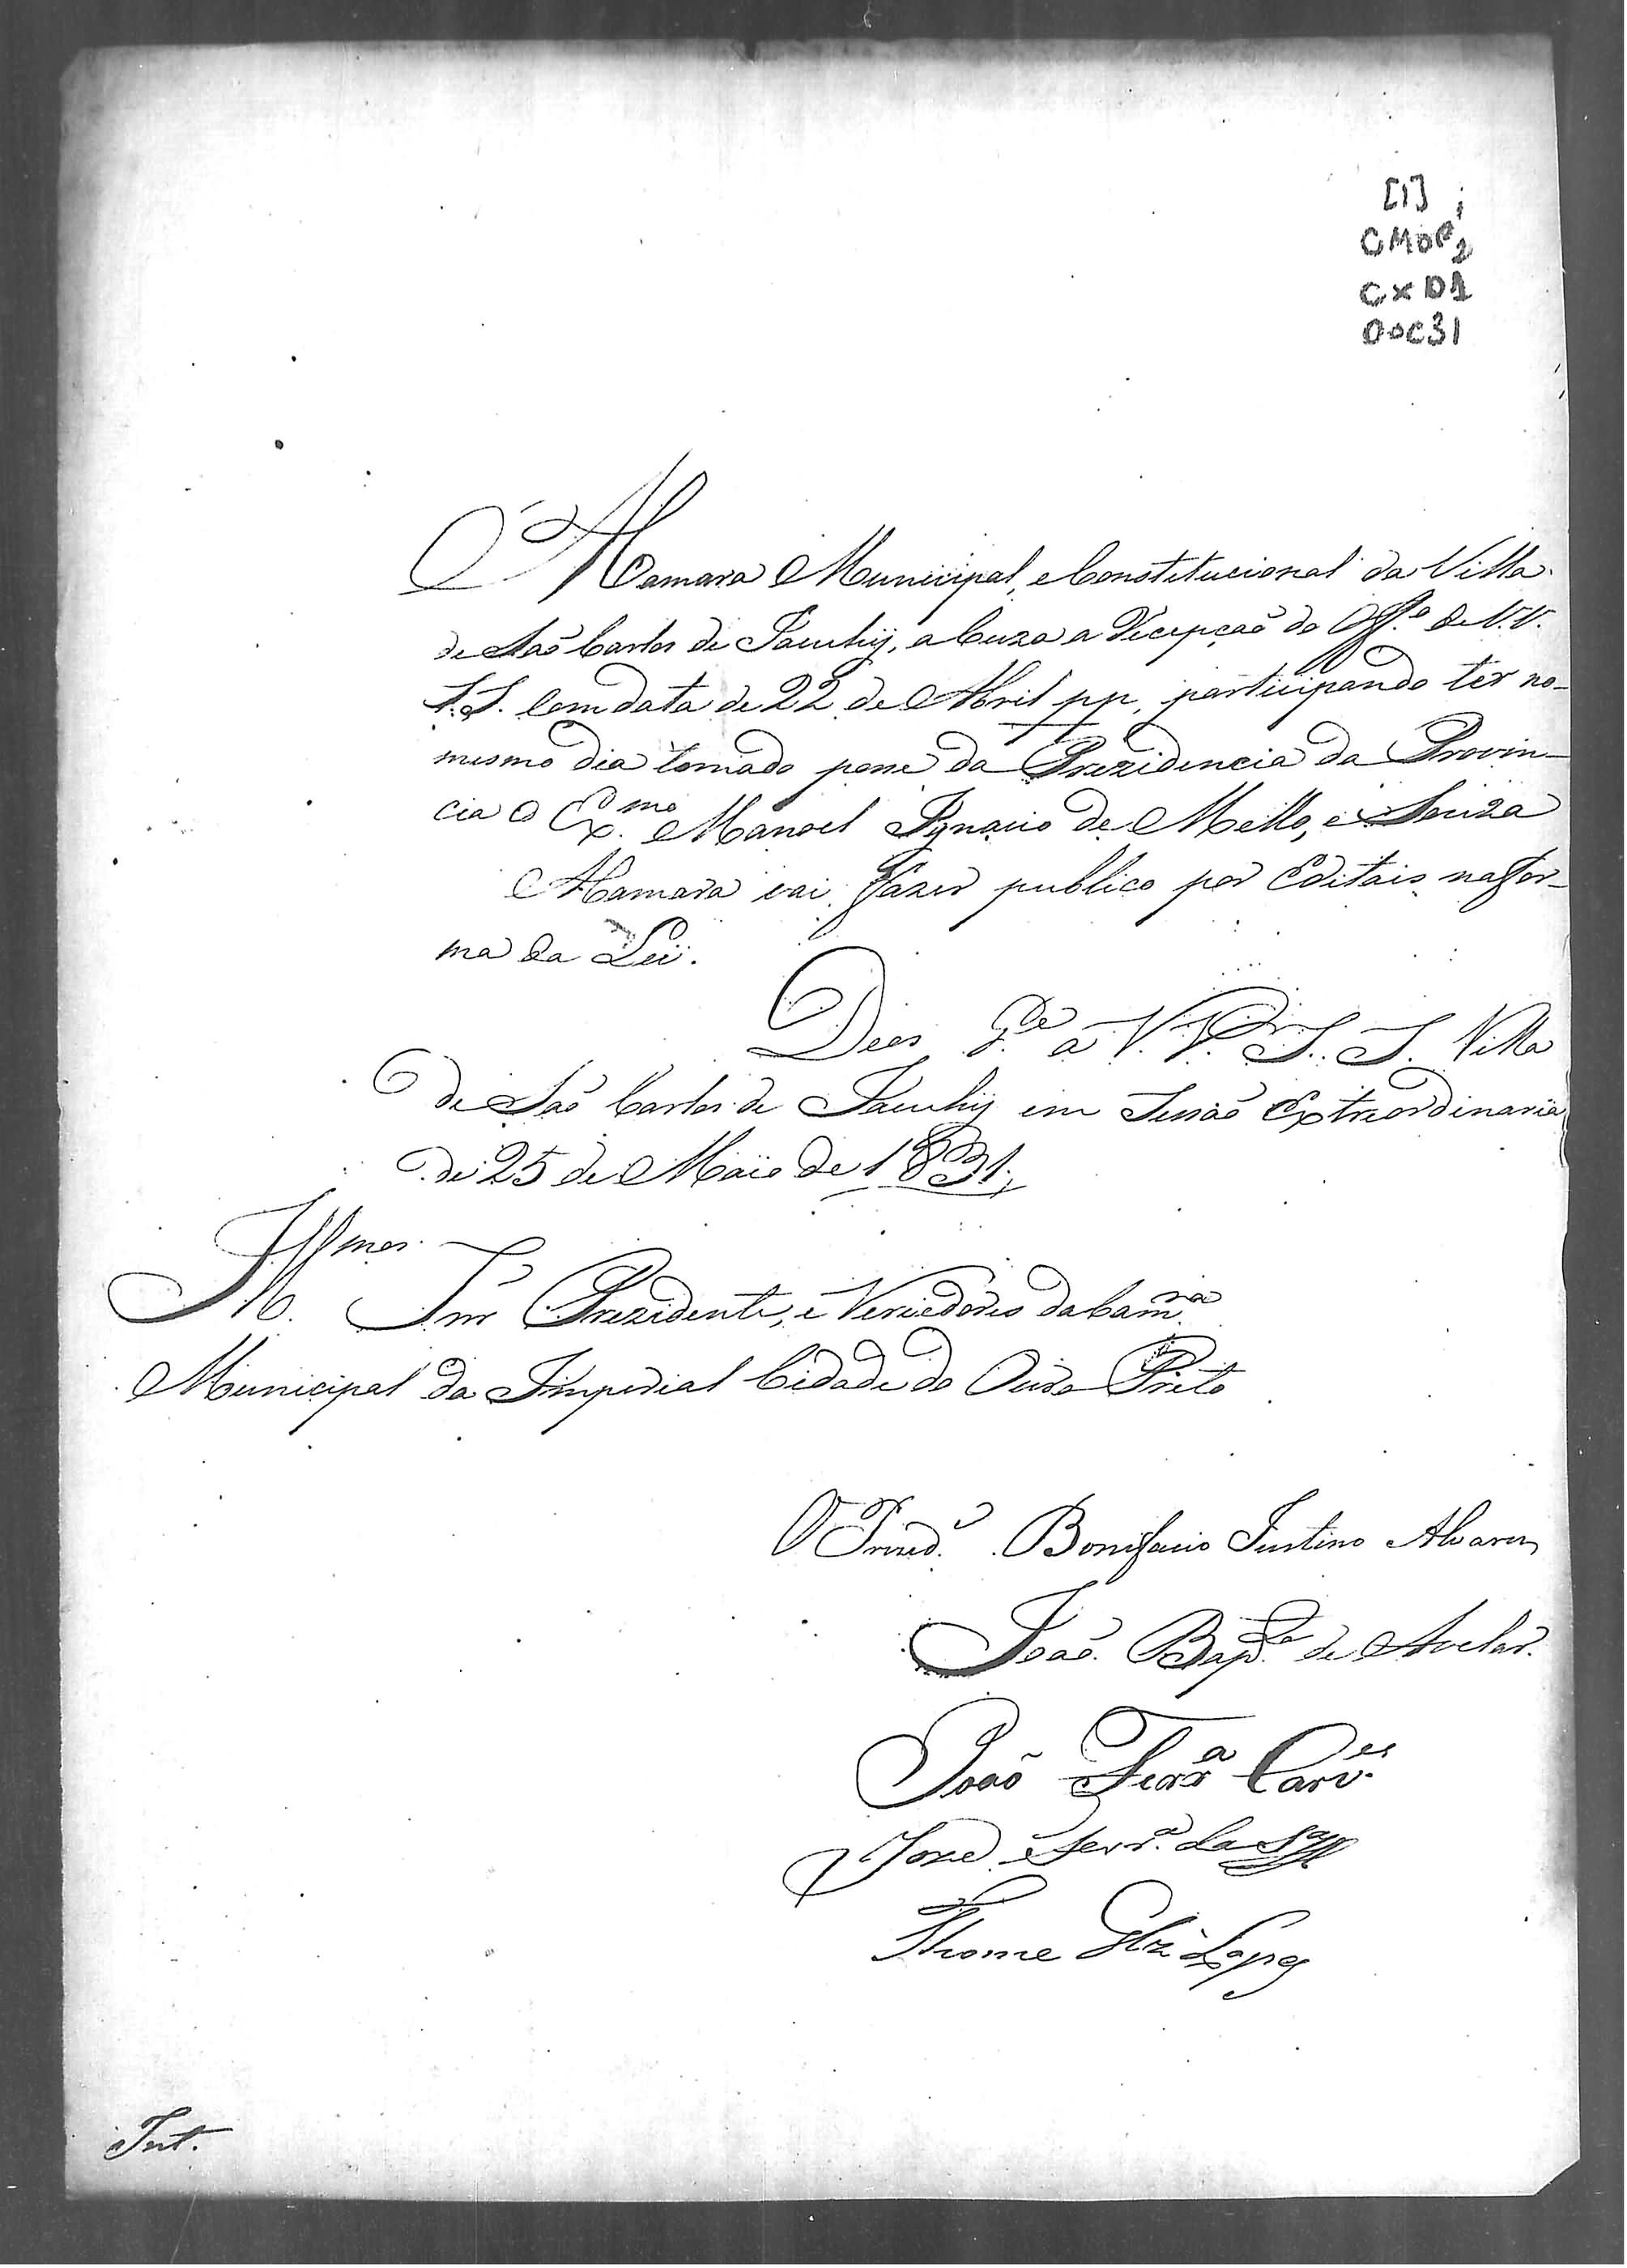 [1];
CMOP2
CX 01
DOC 31
A Camara Municipal, e Constitucional da Villa
de São Carlos de Jacuhÿ, acuza a Recepçaõ do Off.º de V.V.
S.S. com data de 22 de Abril pp, participando ter no
mesmo dia tomado posse da Prezidencia da Provin-
cia o Ex.mo Manoel Ignacio de Mello, e Souza
A Camara vai fazer publico por Editais na For-
ma da Leÿ.
Deos G.de a V.V. S.S. Villa
de São Carlos de Jacuhÿ em Sessaõ Extraordinaria
de 25 de Maio de 1831.
Ill.mos Snr Prezidente, e Veriadores da Cam.ra
Municipal da Imperial Cidade do Ouro Preto
O Prezid.e Bonifacio Justino Alvares
João Bap.ta de Avelar.
João Ferr.a Carv.
Joze Ferr.a da S.a
Thome Glz Lopes